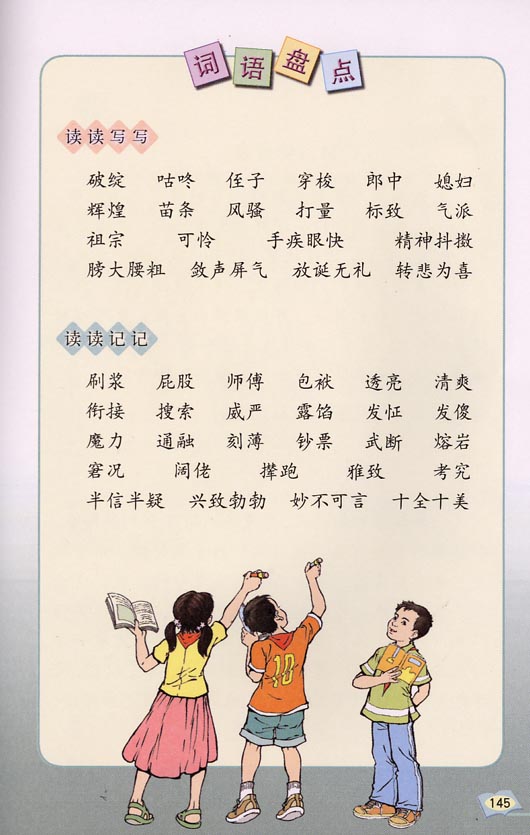 词语盘点
读读写写
破绽 咕咚 侄子 穿梭 郎中 媳妇
辉煌 苗条 风骚 打量 标致 气派
祖宗 可怜 手疾眼快 精神抖擞
膀大腰粗 敛声屏气 放诞无礼 转悲为喜
读读记记
刷浆 屁股 师傅 包袱 透亮 清爽
衔接 搜索 威严 露馅 发怔 发傻
魔力 通融 刻薄 钞票 武断 熔岩
窘况 阔佬 撵跑 雅致 考究
半信半疑 兴致勃勃 妙不可言 十全十美
10
145